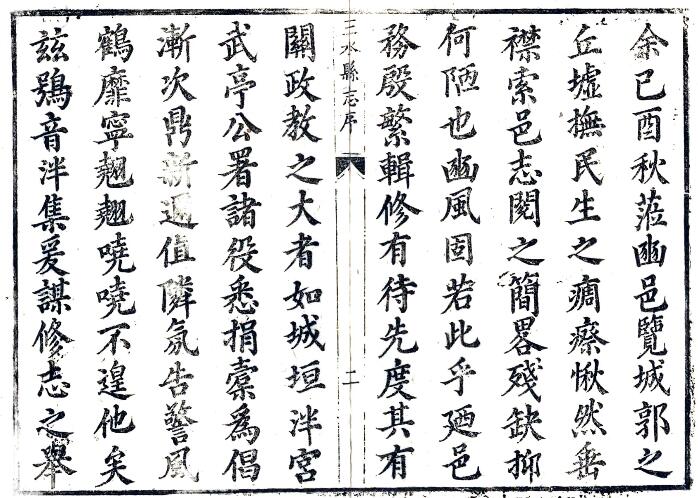 余己酉秋蒞豳邑覽城郭之
丘墟撫民生之痌瘵愀然垂
襟索邑志閱之簡畧殘缺抑
何陋也豳風固若此乎廼邑
務殷繁輯修有待先度其有
三水縣志序
二
關政教之大者如城垣泮宮
武亭公署諸役悉捐橐為倡
漸次鼎新適值隣氛告警風
鶴靡寧翹翹嘵嘵不遑他矣
兹鴞音泮集爰謀修志之舉